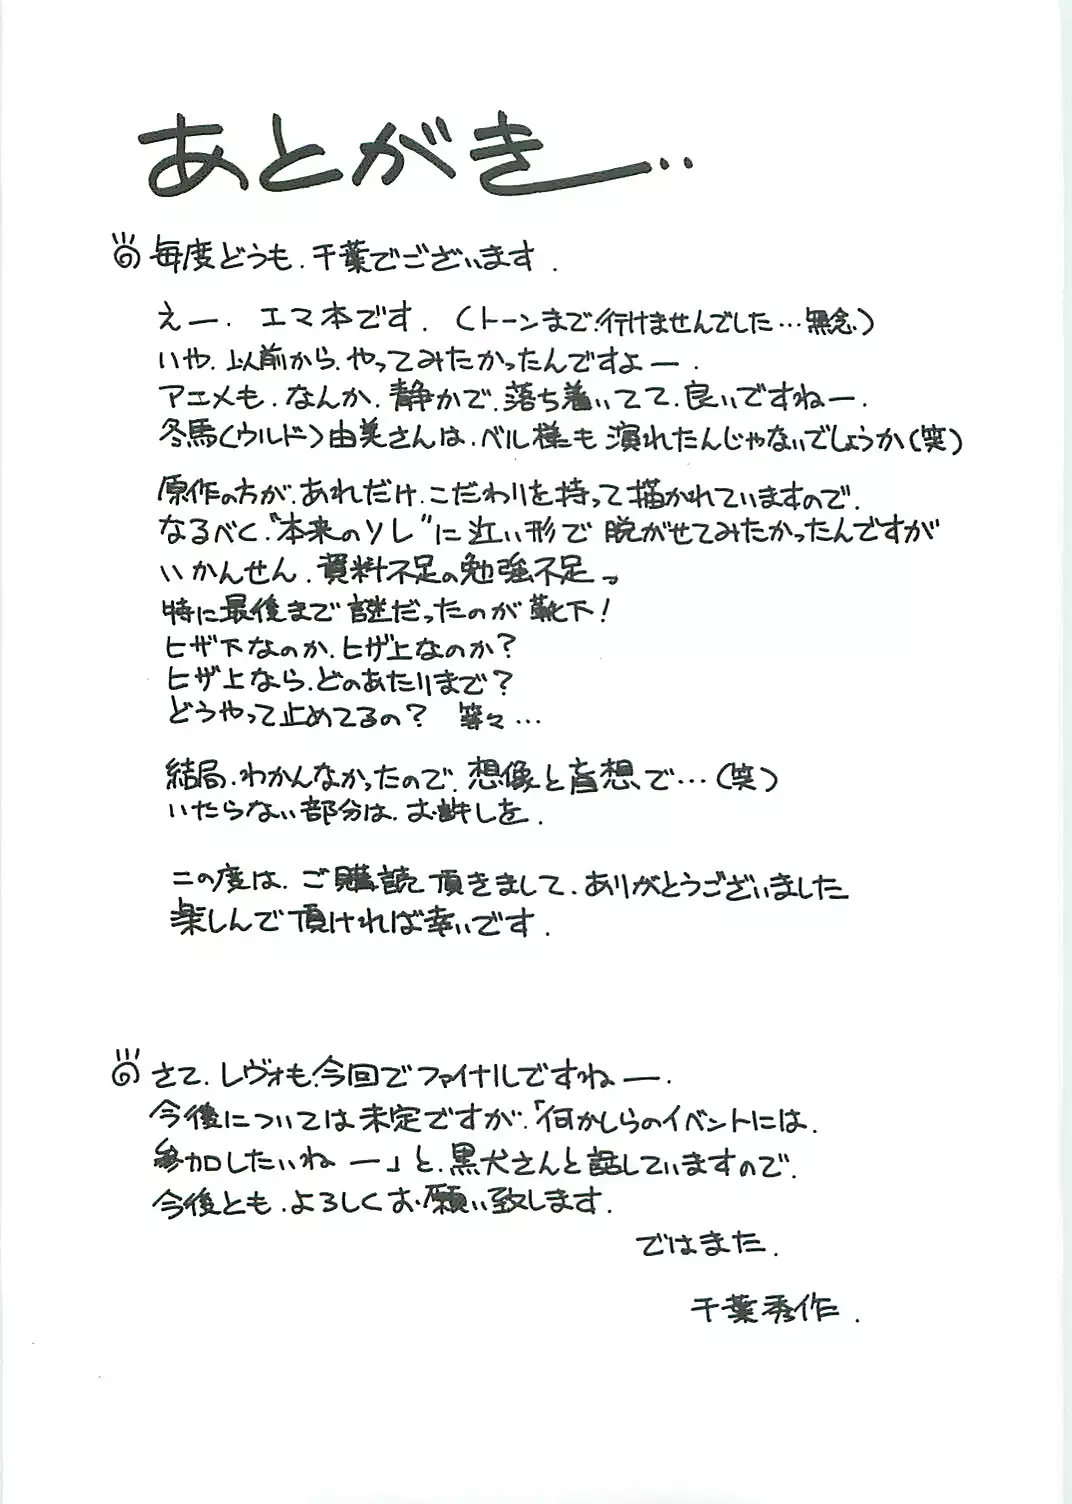 あとがき…
毎度どうも、千葉でございます.
えー. エマ本です. (トーンまで、行けませんでした…無念)
いや、以前から、やってみたかったんですよー.
アニメも、なんか、静かで、落ち着いてて、良いですねー.
冬馬(ウルド)由美さんは、ベル様にも 演れたんじゃないでしょうか(笑)
原作の方が、あれだけ、こだわりを持って描かれていますので、
なるべく、"本来のソレ"に近い形で 脱がせてみたかったんですが
いかんせん、資料不足の勉強不足っ
特に最後まで謎だったのが靴下!
ヒザ下なのか、ヒザ上なのか?
ヒザ上なら、どのあたりまで?
どうやって止めてるの? 等々…
結局、わかんなかったので、想像と盲想、で…(笑)
いたらない部分は、お許しを.
この度は、ご購読頂きまして、ありがとうございました
楽しんで頂ければ幸いです.
さて、レヴォも、今回でファイナルですねー.
今後については未定ですが、「何かしらのイベントには、
参加したいねー」と、黒犬さんと話していますので、
今後とも、よろしくお願い致します.
ではまた.
千葉秀作.